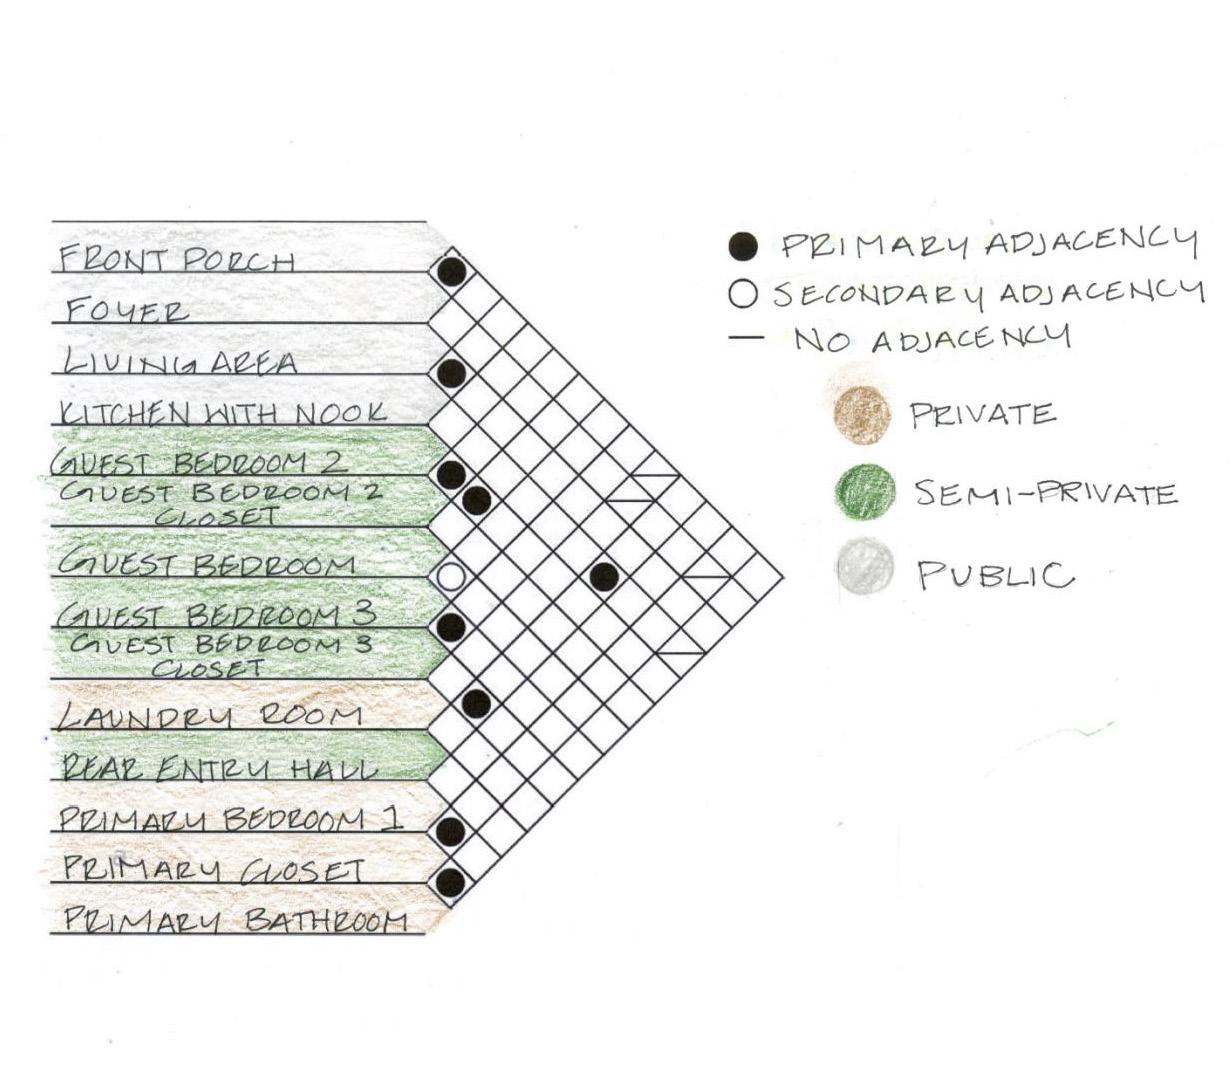 FRONT PORCH
FOYER
LIVING AREA
KITCHEN WITH NOOK
GUEST BEDROOM 2
GUEST BEDROOM 2
CLOSET
GUEST BEDROOM
GUEST BEDROOM 3
GUEST BEDROOM 3
CLOSET
LAUNDRY ROOM
REAR ENTRY HALL
PRIMARY BEDROOM 1
PRIMARY CLOSET
PRIMARY BATHROOM
PRIMARY ADJACENCY
SECONDARY ADJACENCY
NO ADJACENCY
PRIVATE
SEMI-PRIVATE
PUBLIC